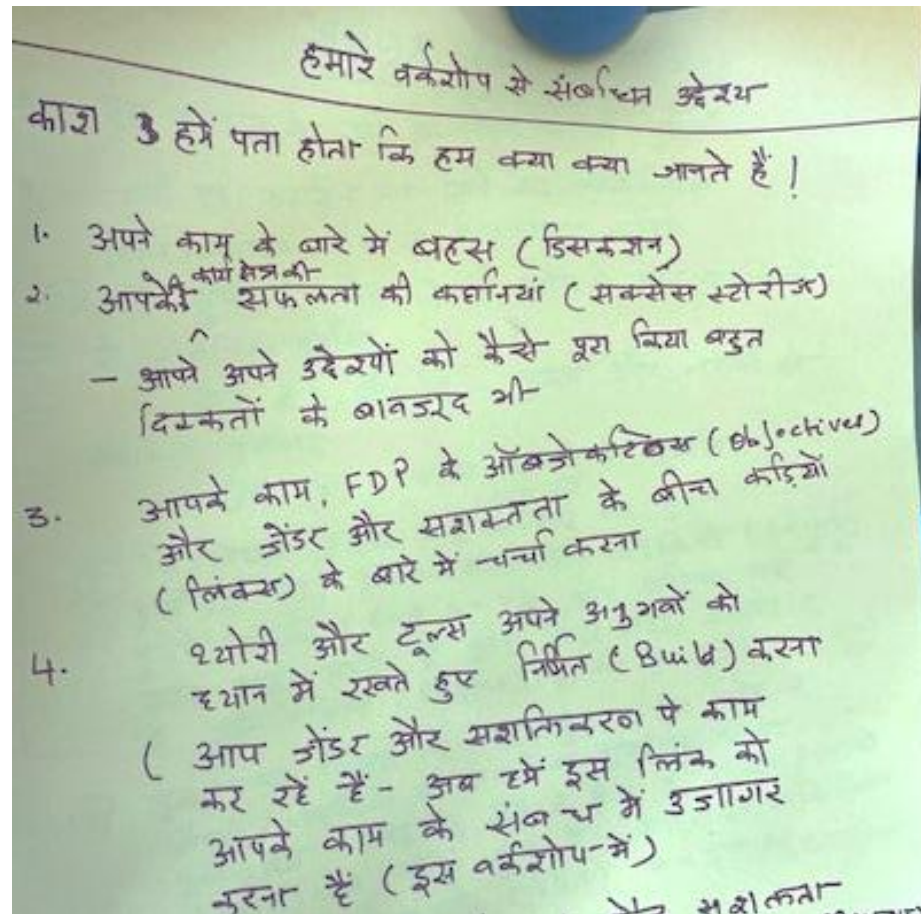 हमारे वर्कशोप से संबंधित उद्देश्य
काश हमें पता होता कि हम क्या क्या जानते हैं !
1. अपने काम के बारे में बहस (डिसकशन)
कार्य क्षेत्र की
2. आपकी सफलता की कहानियां (सक्सेस स्टोरीज)
- आपने अपने उद्देश्यों को कैसे पूरा किया बहुत
दिक्कतों के बावजूद भी
3. आपके काम, FDP के ऑबजेकटिव्स (Objectives)
और जेंडर और सशक्तता के बीच कड़ियों
(लिंक्स) के बारे में चर्चा करना
4. थ्योरी और टूल्स अपने अनुभवों को
ध्यान में रखते हुए निर्मित (Build) करना
( आप जेंडर और सशक्तिकरण पे काम
कर रहें हैं - अब हमें इस लिंक को
आपके काम के संबंध में उजागर
करना हैं (इस वर्कशोप में)
सशक्तता